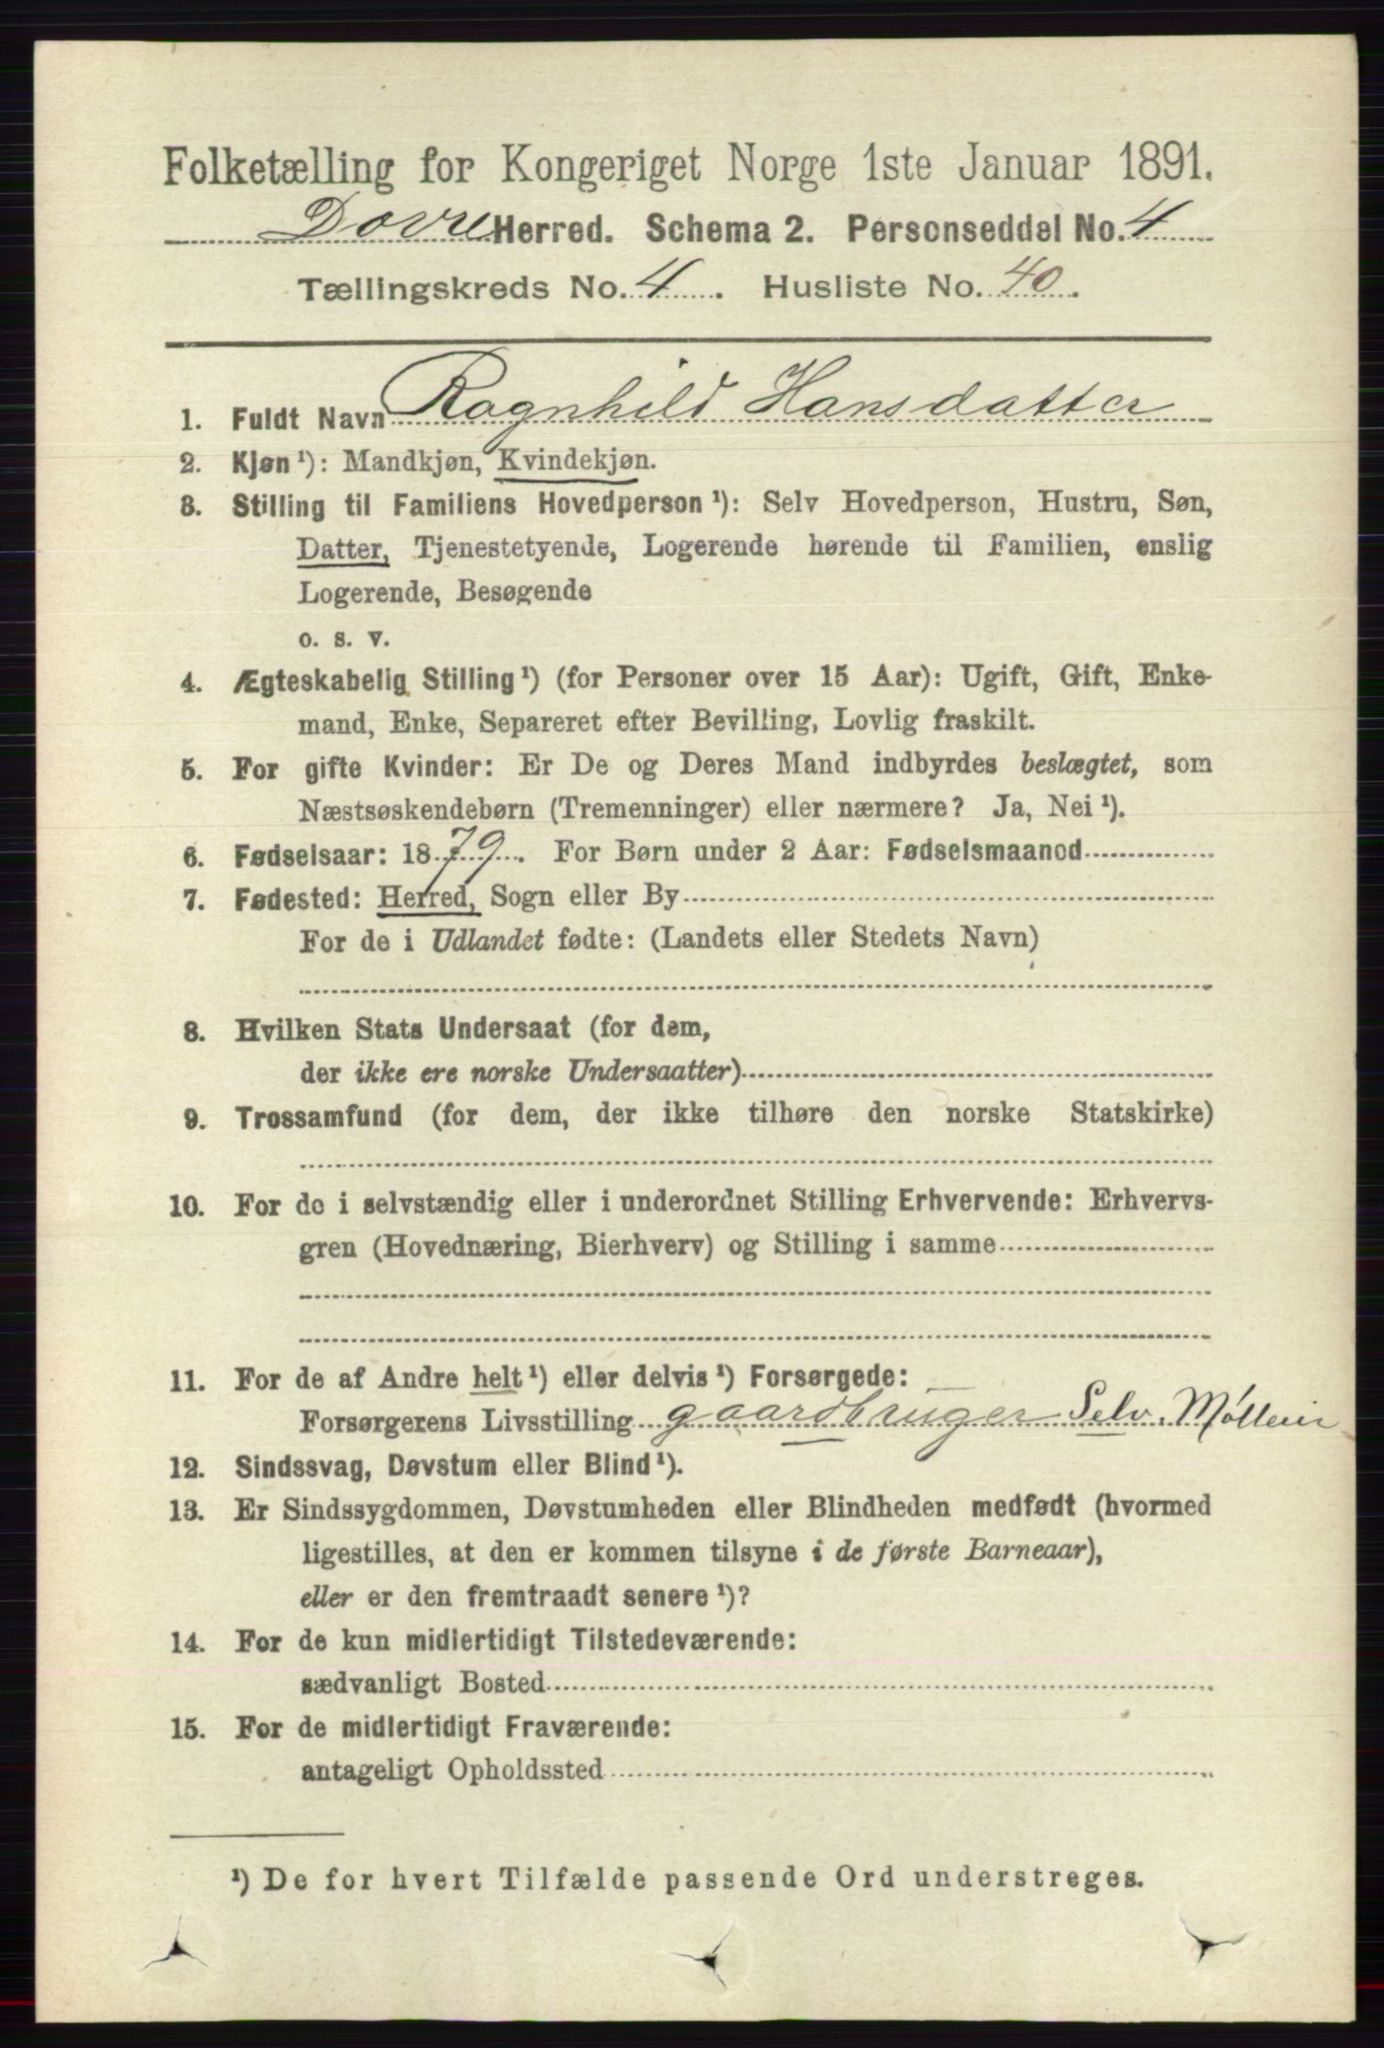 Folketælling for Kongeriget Norge 1ste Januar 1891.
Dovre Herred. Schema 2. Personseddel No. 4
Tællingskreds No. 4. Husliste No. 40.
1. Fuldt Navn Ragnhild Hansdatter
2. Kjøn ¹): Mandkjøn, Kvindekjøn.
3. Stilling til Familiens Hovedperson ¹): Selv Hovedperson, Hustru, Søn,
Datter, Tjenestetyende, Logerende hørende til Familien, enslig
Logerende, Besøgende
o. s. v.
4. Ægteskabelig Stilling ¹) (for Personer over 15 Aar): Ugift, Gift, Enke-
mand, Enke, Separeret efter Bevilling, Lovlig fraskilt.
5. For gifte Kvinder: Er De og Deres Mand indbyrdes beslægtet, som
Næstsøskendebørn (Tremenninger) eller nærmere? Ja, Nei ¹).
6. Fødselsaar: 1879. For Børn under 2 Aar: Fødselsmaaned
7. Fødested: Herred, Sogn eller By
For de i Udlandet fødte: (Landets eller Stedets Navn)
8. Hvilken Stats Undersaat (for dem,
der ikke ere norske Undersaatter)
9. Trossamfund (for dem, der ikke tilhøre den norske Statskirke)
10. For de i selvstændig eller i underordnet Stilling Erhvervende: Erhvervs-
gren (Hovednæring, Bierhverv) og Stilling i samme
11. For de af Andre helt ¹) eller delvis ¹) Forsørgede:
Forsørgerens Livsstilling gaardbruger Selv.
12. Sindssvag, Døvstum eller Blind ¹).
13. Er Sindssygdommen, Døvstumheden eller Blindheden medfødt (hvormed
ligestilles, at den er kommen tilsyne i de første Barneaar),
eller er den fremtraadt senere ¹)?
14. For de kun midlertidigt Tilstedeværende:
sædvanligt Bosted
15. For de midlertidigt Fraværende:
antageligt Opholdssted
¹) De for hvert Tilfælde passende Ord understreges.